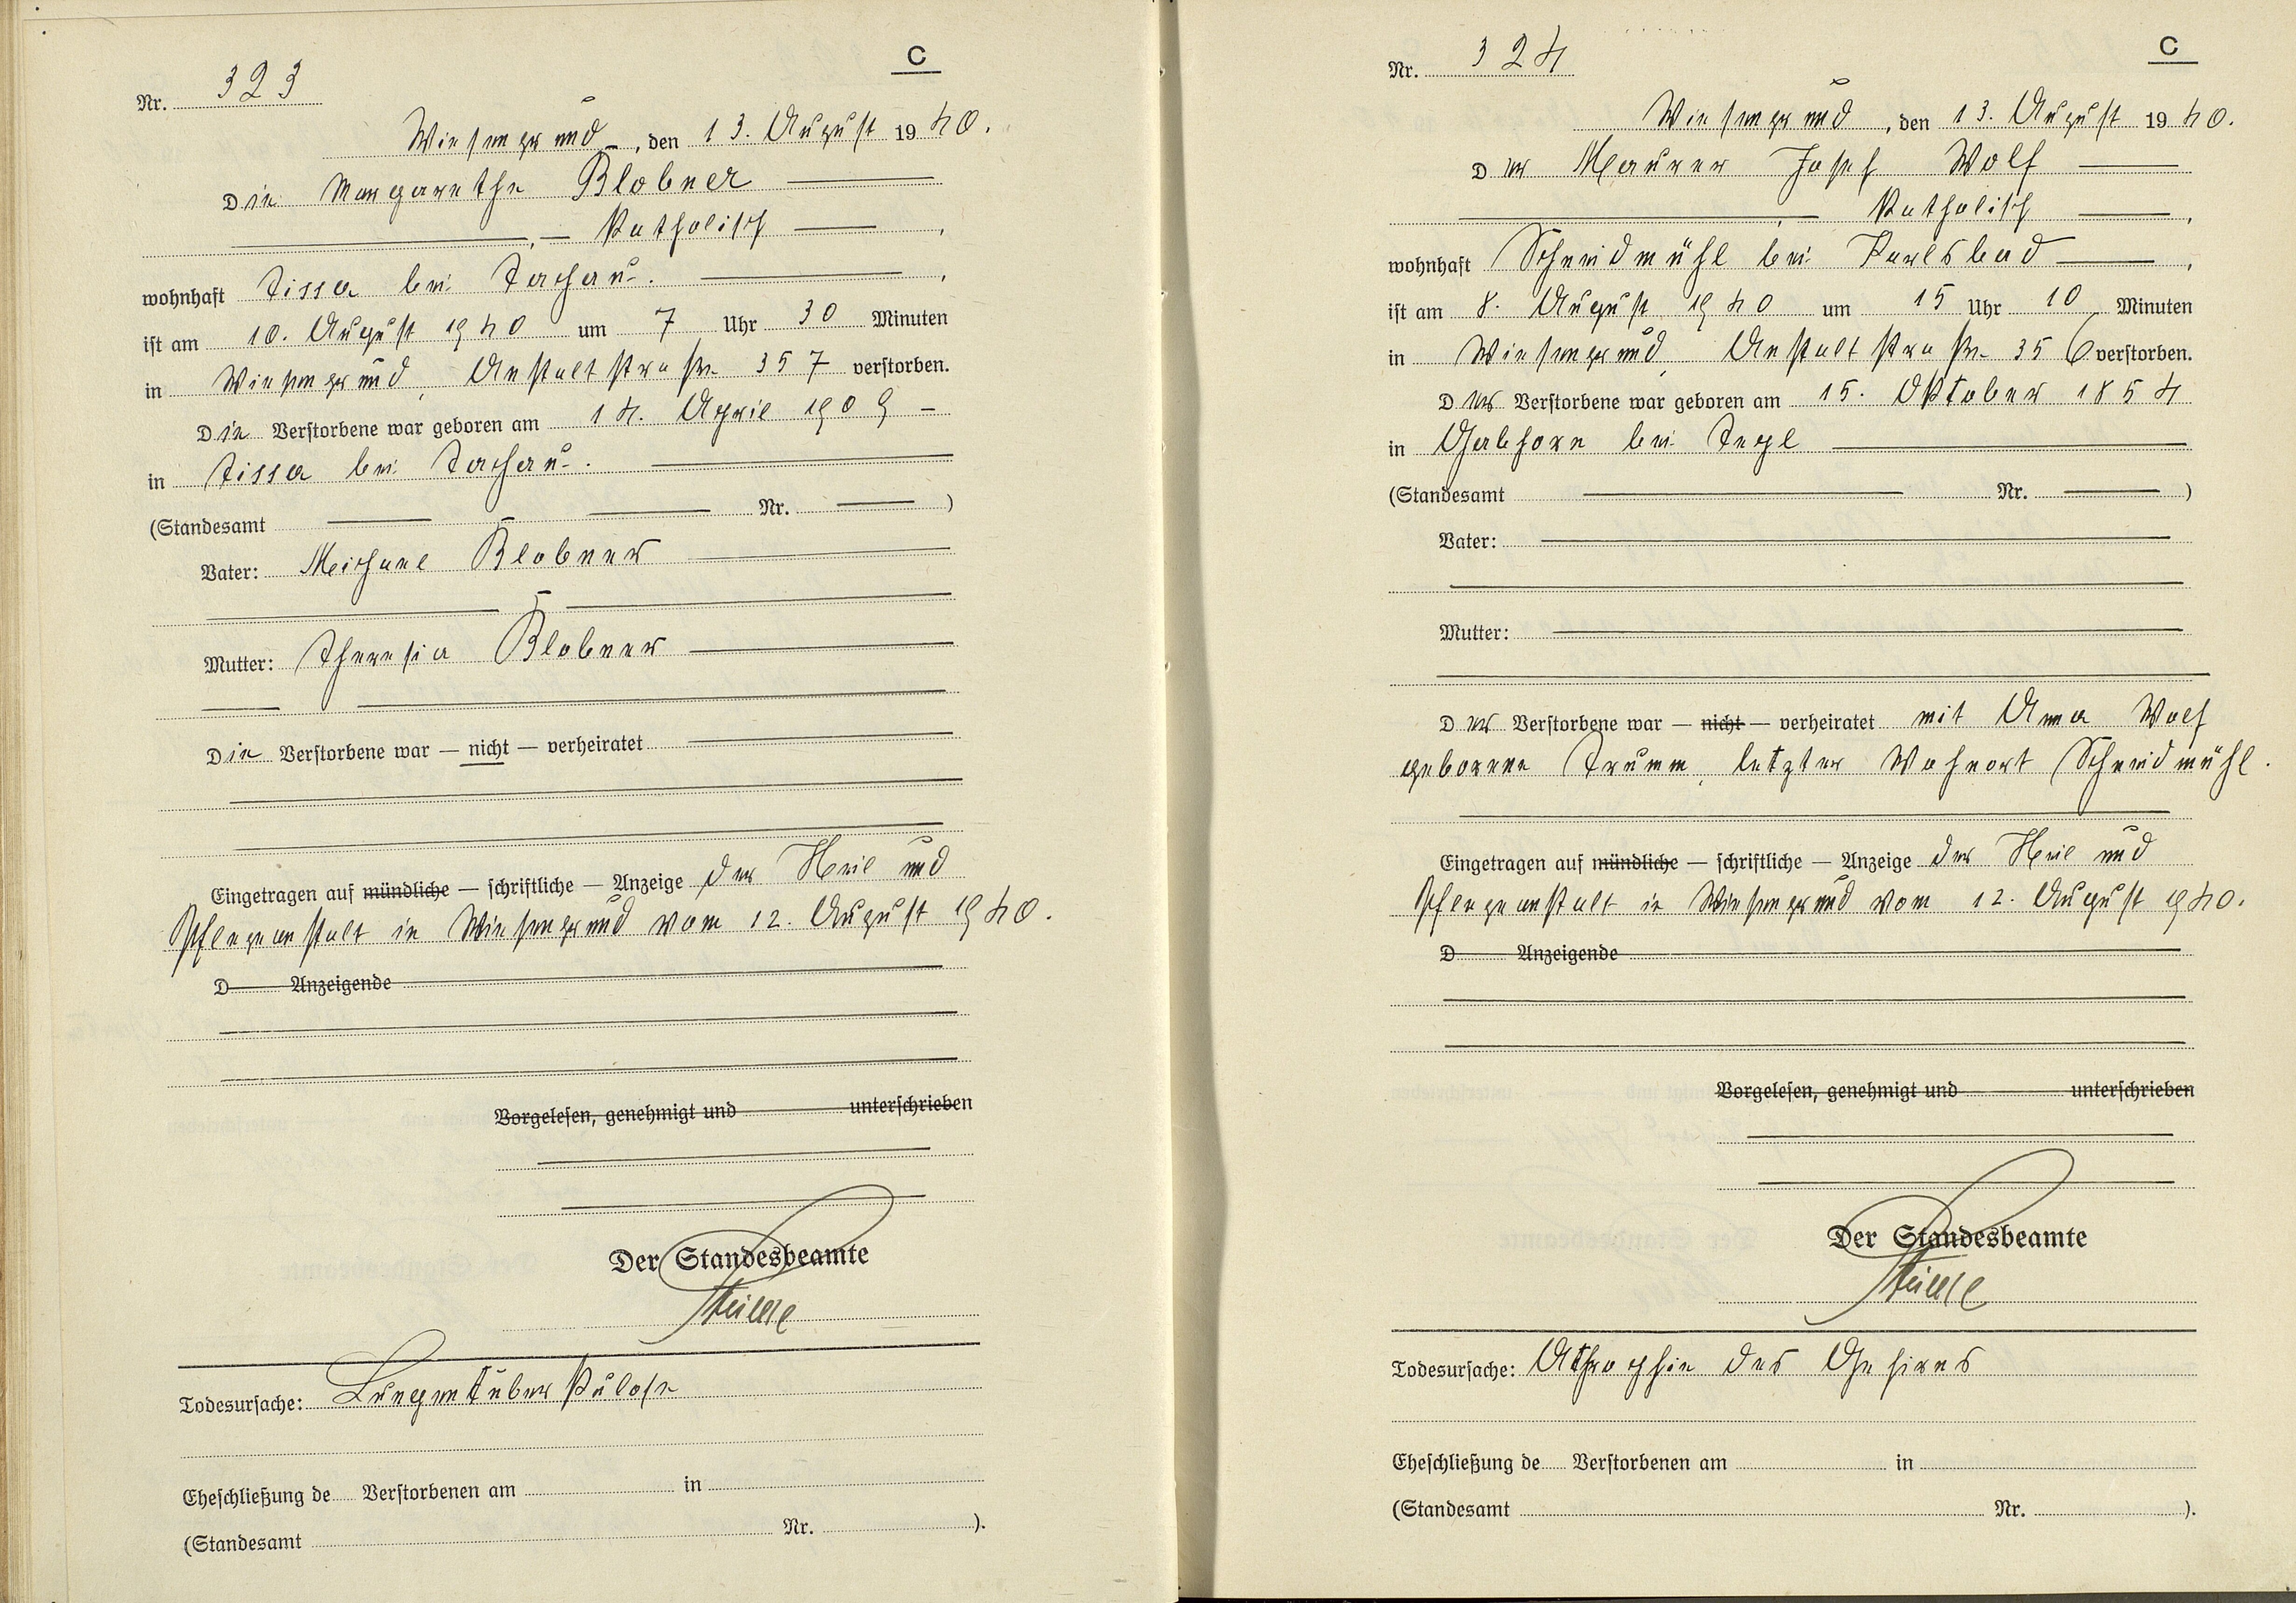 C
Nr. 323
Wiesengrund, den 13. August 1940.
Die Margarethe Blobner
, Katholisch ,
wohnhaft Tissa bei Tachau. ,
ist am 10. August 1940 um 7 Uhr 30 Minuten
in Wiesengrund, Anstaltstraße 357 verstorben.
Die Verstorbene war geboren am 14. April 1909
in Tissa bei Tachau.
(Standesamt Nr. )
Vater: Michael Blobner
Mutter: Theresia Blobner
Die Verstorbene war — nicht — verheiratet
Eingetragen auf mündliche — schriftliche — Anzeige der Heil und
Pflegeanstalt in Wiesengrund vom 12. August 1940.
D Anzeigende
Vorgelesen, genehmigt und unterschrieben
Der Standesbeamte
Todesursache: Lungentuberkulose
Eheschließung de Verstorbenen am in
(Standesamt Nr. ).
C
Nr. 324
Wiesengrund, den 13. August 1940.
Der Maurer Josef Wolf
, Katholisch ,
wohnhaft Schneidmühl bei Karlsbad ,
ist am 8. August 1940 um 15 Uhr 10 Minuten
in Wiesengrund, Anstaltstraße 356 verstorben.
Der Verstorbene war geboren am 15. Oktober 1854
in Gabhorn bei Tepl
(Standesamt Nr. )
Vater:
Mutter:
Der Verstorbene war — nicht — verheiratet mit Anna Wolf
geborene Trumm, letzter Wohnort Schneidmühl.
Eingetragen auf mündliche — schriftliche — Anzeige der Heil und
Pflegeanstalt in Wiesengrund vom 12. August 1940.
D Anzeigende
Vorgelesen, genehmigt und unterschrieben
Der Standesbeamte
Todesursache: Athrophie des Gehirns
Eheschließung de Verstorbenen am in
(Standesamt Nr. ).